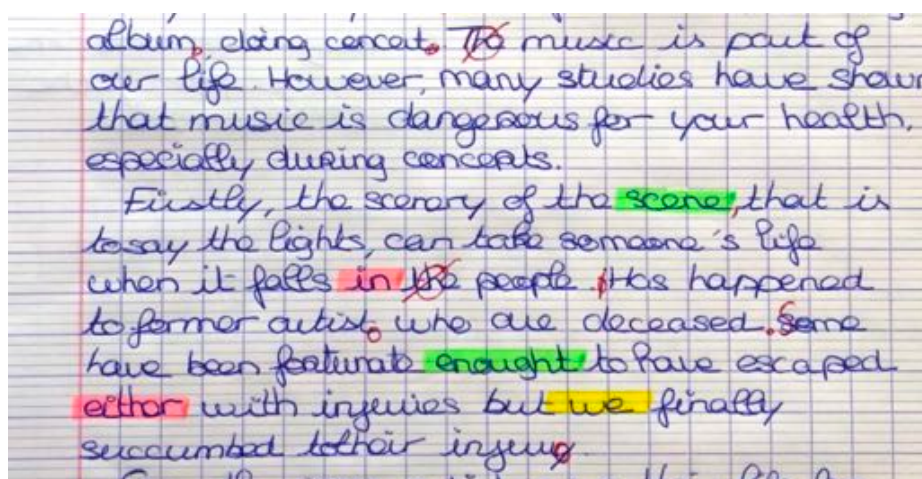 album, doing concert. The music is part of
our life. However, many studies have shown
that music is dangerous for your health,
especially during concerts.
Firstly, the scenary of the scene, that is
to say the lights, can take someone's life
when it falls in the people. Has happened
to former artist, who are deceased. Some
have been fortunate enought to have escaped
either with injuries but we finally
succumbed to their injury.